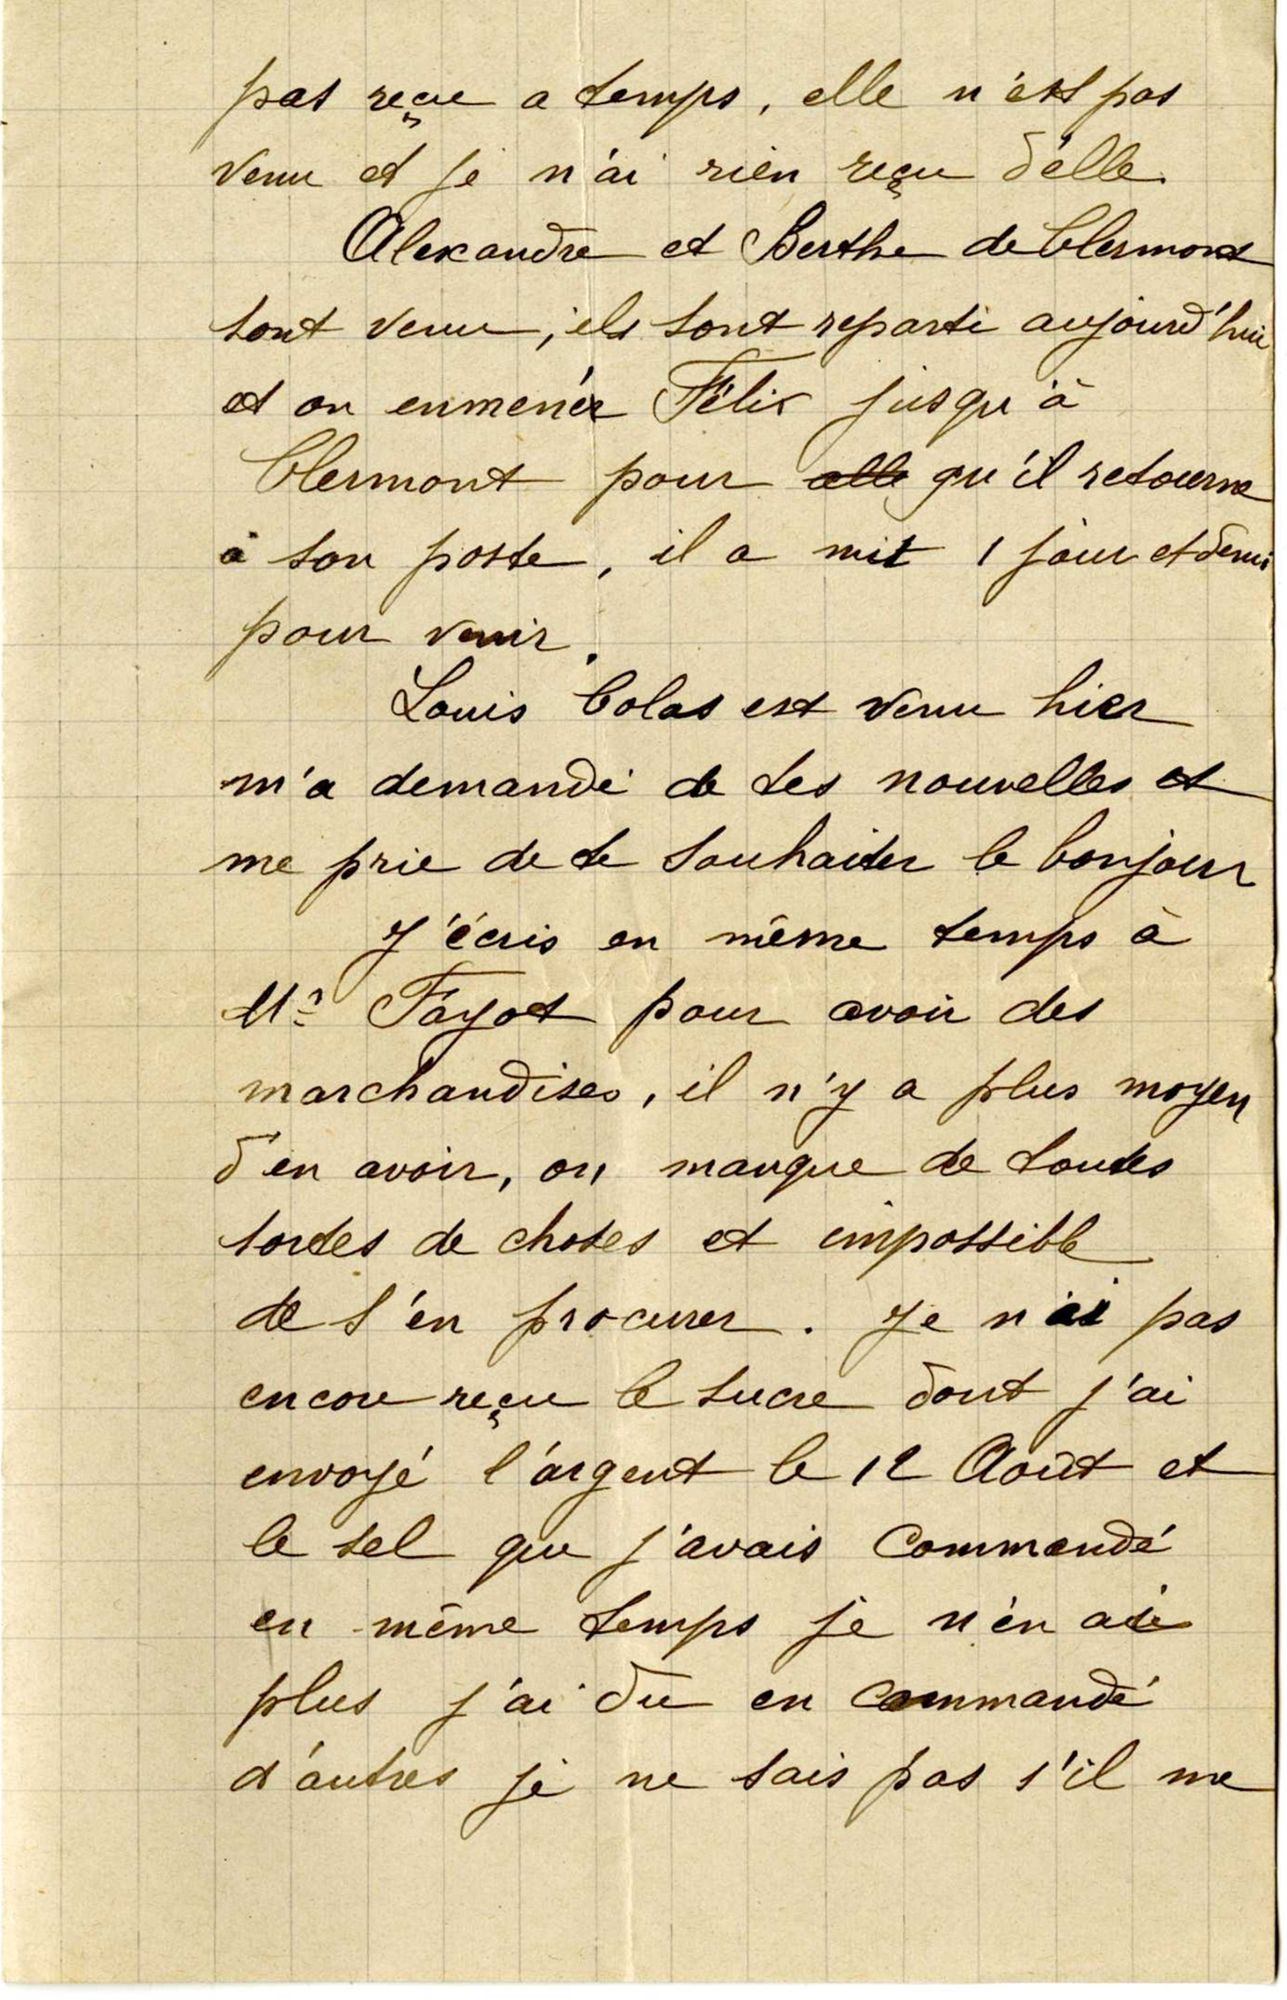 pas reçue a temps, elle n'est pas
venu et je n'ai rien reçu d'elle.
Alexandre et Berthe de Clermont
sont venu, ils sont reparti aujourd'hui
et on enmenér Félix jusqu'à
Clermont pour elle qu'il retourne
à son poste, il a mit 1 jour et demi
pour venir.
Louis Colas est venu hier
m'a demandé de tes nouvelles et
me prie de te souhaiter le bonjour
J'écris en même temps à
Mr Fayot pour avoir des
marchandises, il n'y a plus moyen
d'en avoir, on manque de toutes
sortes de choses et impossible
de s'en procurer. Je n'ai pas
encore reçu le sucre dont j'ai
envoyé l'argent le 12 Août et
le sel que j'avais commandé
en même temps je n'en ai
plus j'ai dû en commandé
d'autres je ne sais pas s'il me